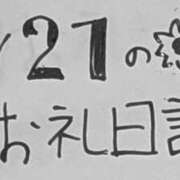 /21の
お礼日記